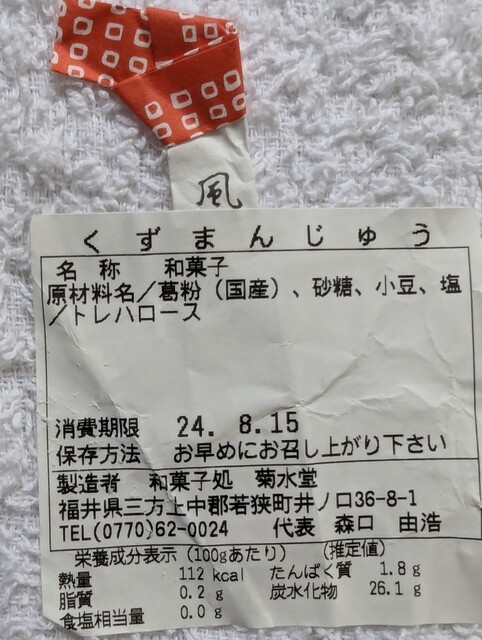 風
くずまんじゅう
名称 和菓子
原材料名／葛粉（国産）、砂糖、小豆、塩
／トレハロース
消費期限 24. 8.15
保存方法 お早めにお召し上がり下さい
製造者 和菓子処 菊水堂
福井県三方上中郡若狭町井ノ口36-8-1
TEL(0770)62-0024 代表 森口 由浩
栄養成分表示（100gあたり） （推定値）
熱量 112 kcal たんぱく質 1.8 g
脂質 0.2 g 炭水化物 26.1 g
食塩相当量 0.0 g